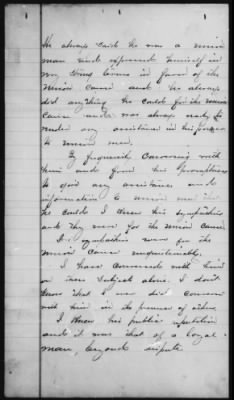 He always said he was a union
man and expressed himself in
very strong terms in favor of the
Union cause and he always
did anything he could for the union
cause and was always ready to
render any assistance in his power
to Union men.
By frequently conversing with
him and from his promptness
to give any assistance and
information to union men that
he could I knew his sympathies
and they were for the Union cause
His sympathies were for the
Union cause unquestionably.
I have conversed with him
on these subjects alone. I don't
know that I ever did converse
with him in the presence of others.
I knew his public reputation
and it was that of a loyal
man, beyond dispute